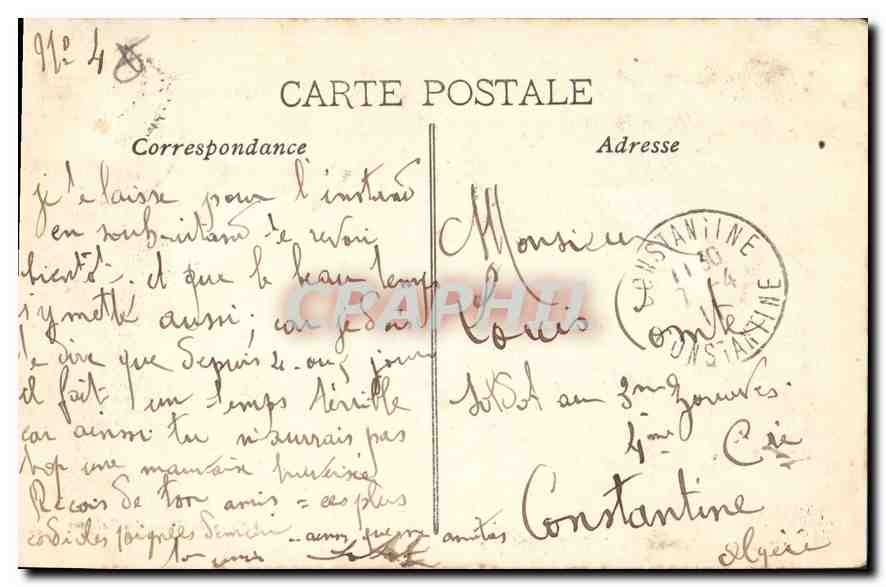 No 4
CARTE POSTALE
Correspondance
je te laisse pour l'instand
en souhaitand te revoir
bientôt. et que le beau temps
s'y mette aussi; car je dois
te dire que depuis 4 ou 5 jours
il fait un temps térrible
car ainsi tu n'aurais pas
trop une mauvaise
Recois de ton amis = ces plus
cordiales poignées de main
ton amis
amitiés
Adresse
Monsieur
Louis Comte
Soldat au 3me Zouaves.
4me Cie
Constantine
Algérie
CONSTANTINE
11 30
7 -4
CONSTANTINE
CPAPHIL